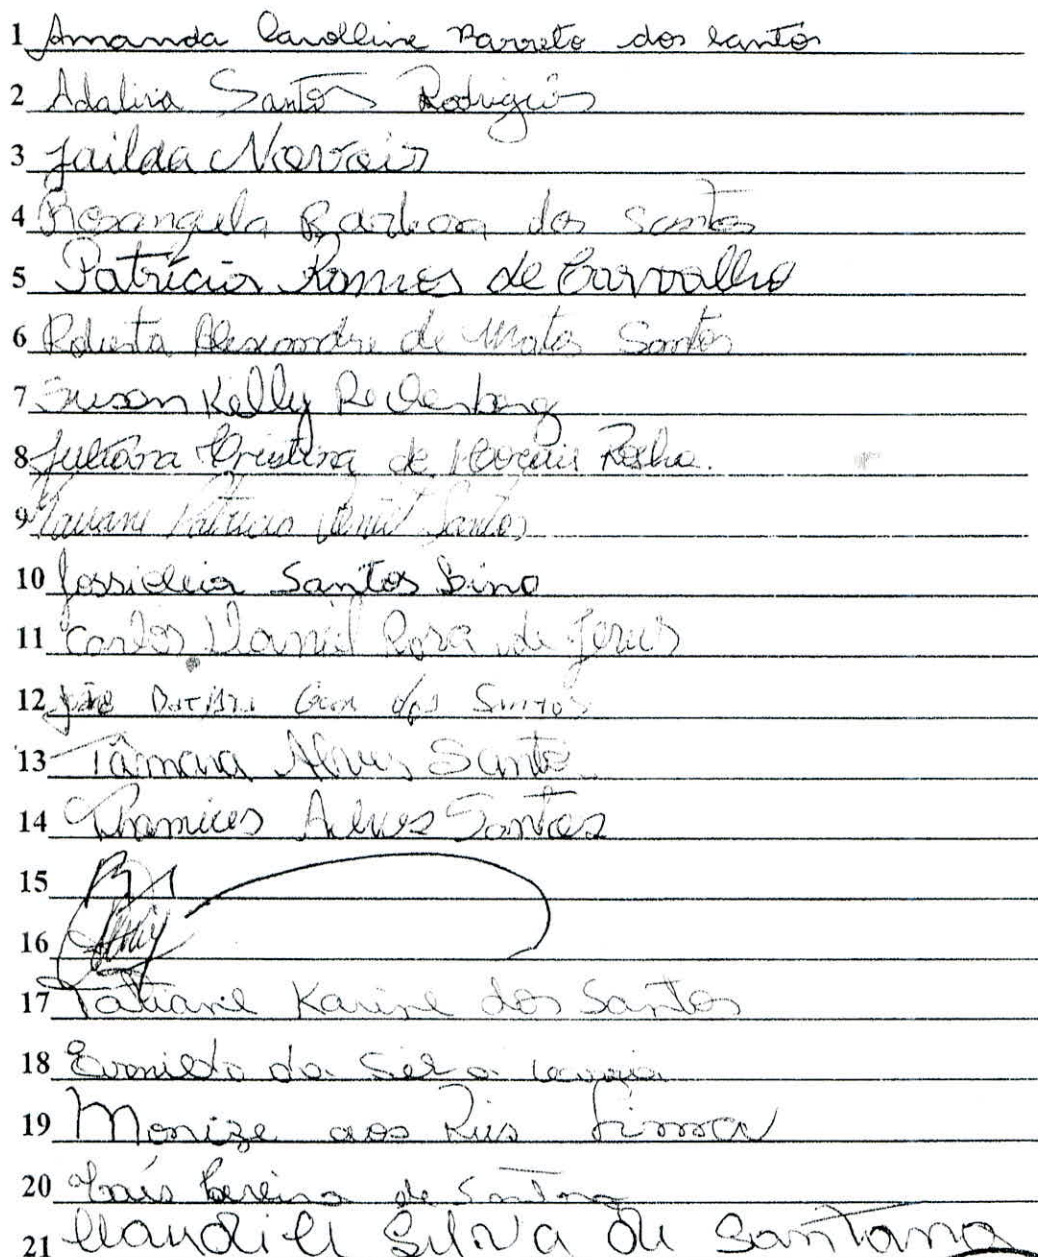 1 Amanda Carolline Barreto dos Santos
2 Adalira Santos Rodrigues
3 Jailda Novais
4 Rosangela Barbosa dos Santos
5 Patrícia Ramos de Carvalho
6 Roberta Alexandre de Matos Santos
7 Susan Kelly
8 Juliana Cristina de Morais Rocha.
9 Patricia Santos
10 Jossicleia Santos Bino
11 Carlos Daniel Rosa de Jesus
12 João Batista dos Santos
13 Tâmara Alves Santos
14 Thamires Alves Santos
15
16
17 Tatiane Karine dos Santos
18 Evanildo da Silva
19 Monize dos Reis Lima
20 Laís Pereira de Santana
21 Claudieli Silva de Santana